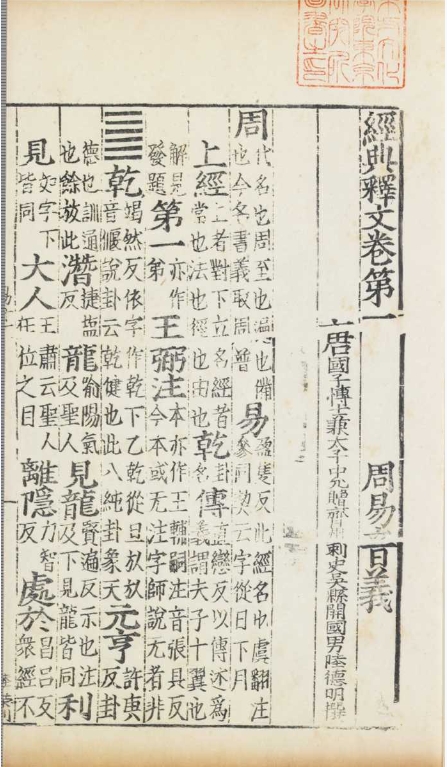 經典釋文卷第一 周易音義
唐國子博士兼太子中允贈齊州刺史吳縣開國男陸德明撰
周代名也周至也遍也備也今名書義取周普易盈隻反此經名也虞翻注參同契云字從日下月
上經上者對下立名經者常也法也徑也由也乾卦名傳直戀反以傳述為義謂夫子十翼也
解見發題第一亦作弟王弼注本亦作王輔嗣注音張具反今本或無注字師說無者非
䷀乾竭然反依字作乾下乙乾從旦㫃㫃音偃說卦云乾健也此八純卦象天元亨許庚反卦
德也訓通也餘放此潛捷鹽反龍喻陽氣及聖人見龍賢遍反示也注及下見龍皆同利
見如字下皆同大人王肅云聖人在位之目離隱力智反處於昌呂反衆經不